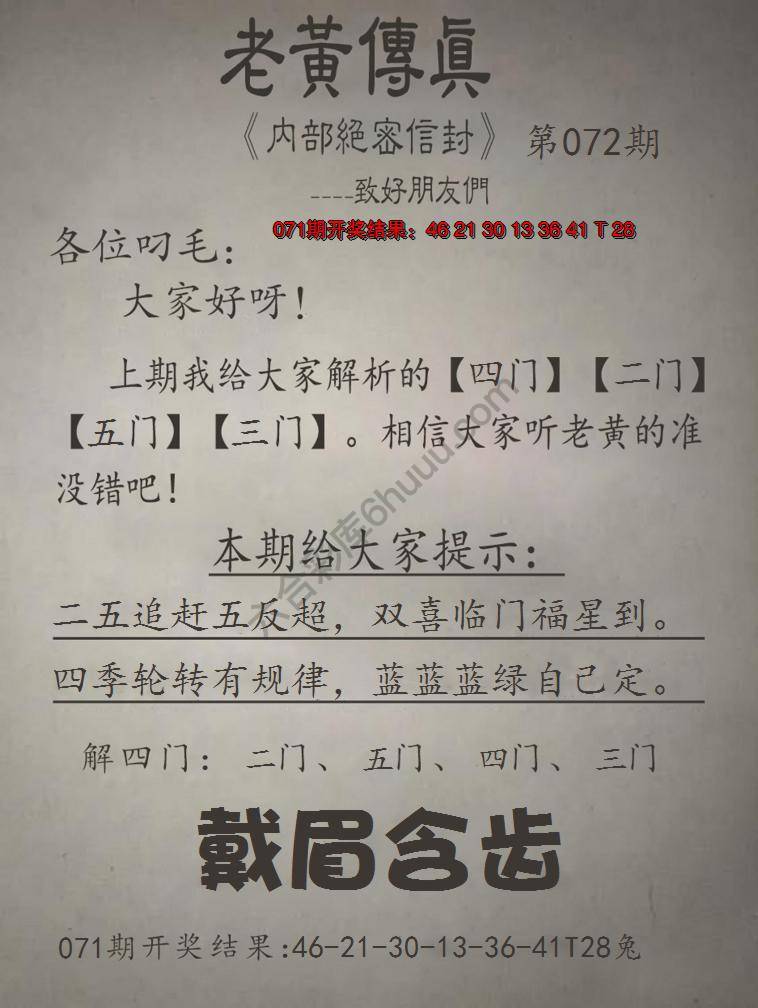 老黃傳眞
《内部絕密信封》 第072期
----致好朋友們
071期开奖结果：46 21 30 13 36 41 T 28
各位叼毛：
大家好呀！
上期我给大家解析的【四门】【二门】
【五门】【三门】。相信大家听老黄的准
没错吧！
本期给大家提示：
二五追赶五反超，双喜临门福星到。
四季轮转有规律，蓝蓝蓝绿自己定。
解四门： 二门、 五门、 四门、 三门
戴眉含齿
071期开奖结果:46-21-30-13-36-41T28兔
六合彩库6huuu.com